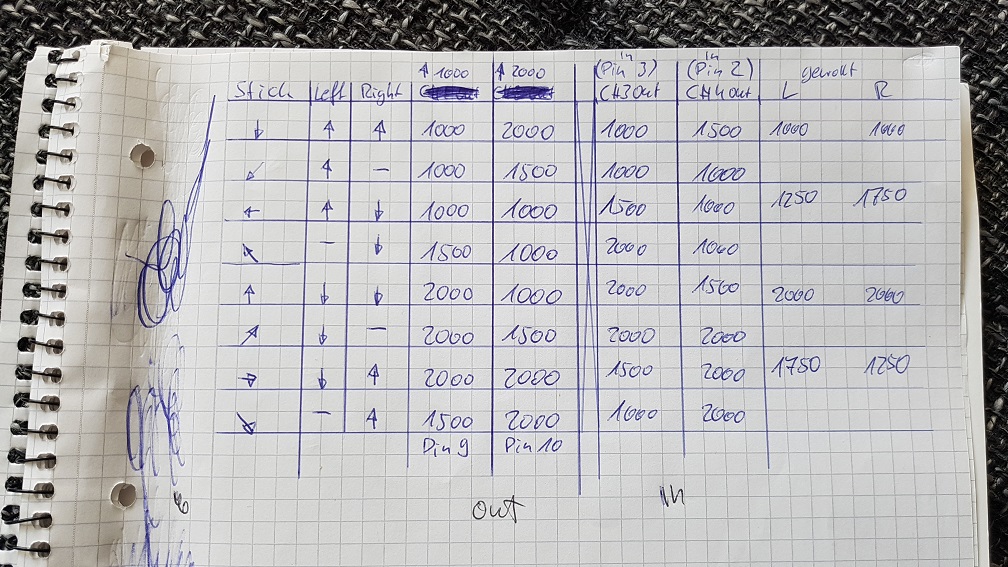 in in
↑ 1000 ↑ 2000 (Pin 3) (Pin 2) gewollt
Stick Left Right CH3 out CH4 out L R
↓ ↑ ↑ 1000 2000 1000 1500 1000 1000
↙ ↑ – 1000 1500 1000 1000
← ↑ ↓ 1000 1000 1500 1000 1250 1750
↖ – ↓ 1500 1000 2000 1000
↑ ↓ ↓ 2000 1000 2000 1500 2000 2000
↗ ↓ – 2000 1500 2000 2000
→ ↓ ↑ 2000 2000 1500 2000 1750 1250
↘ – ↑ 1500 2000 1000 2000
Pin 9 Pin 10
out in